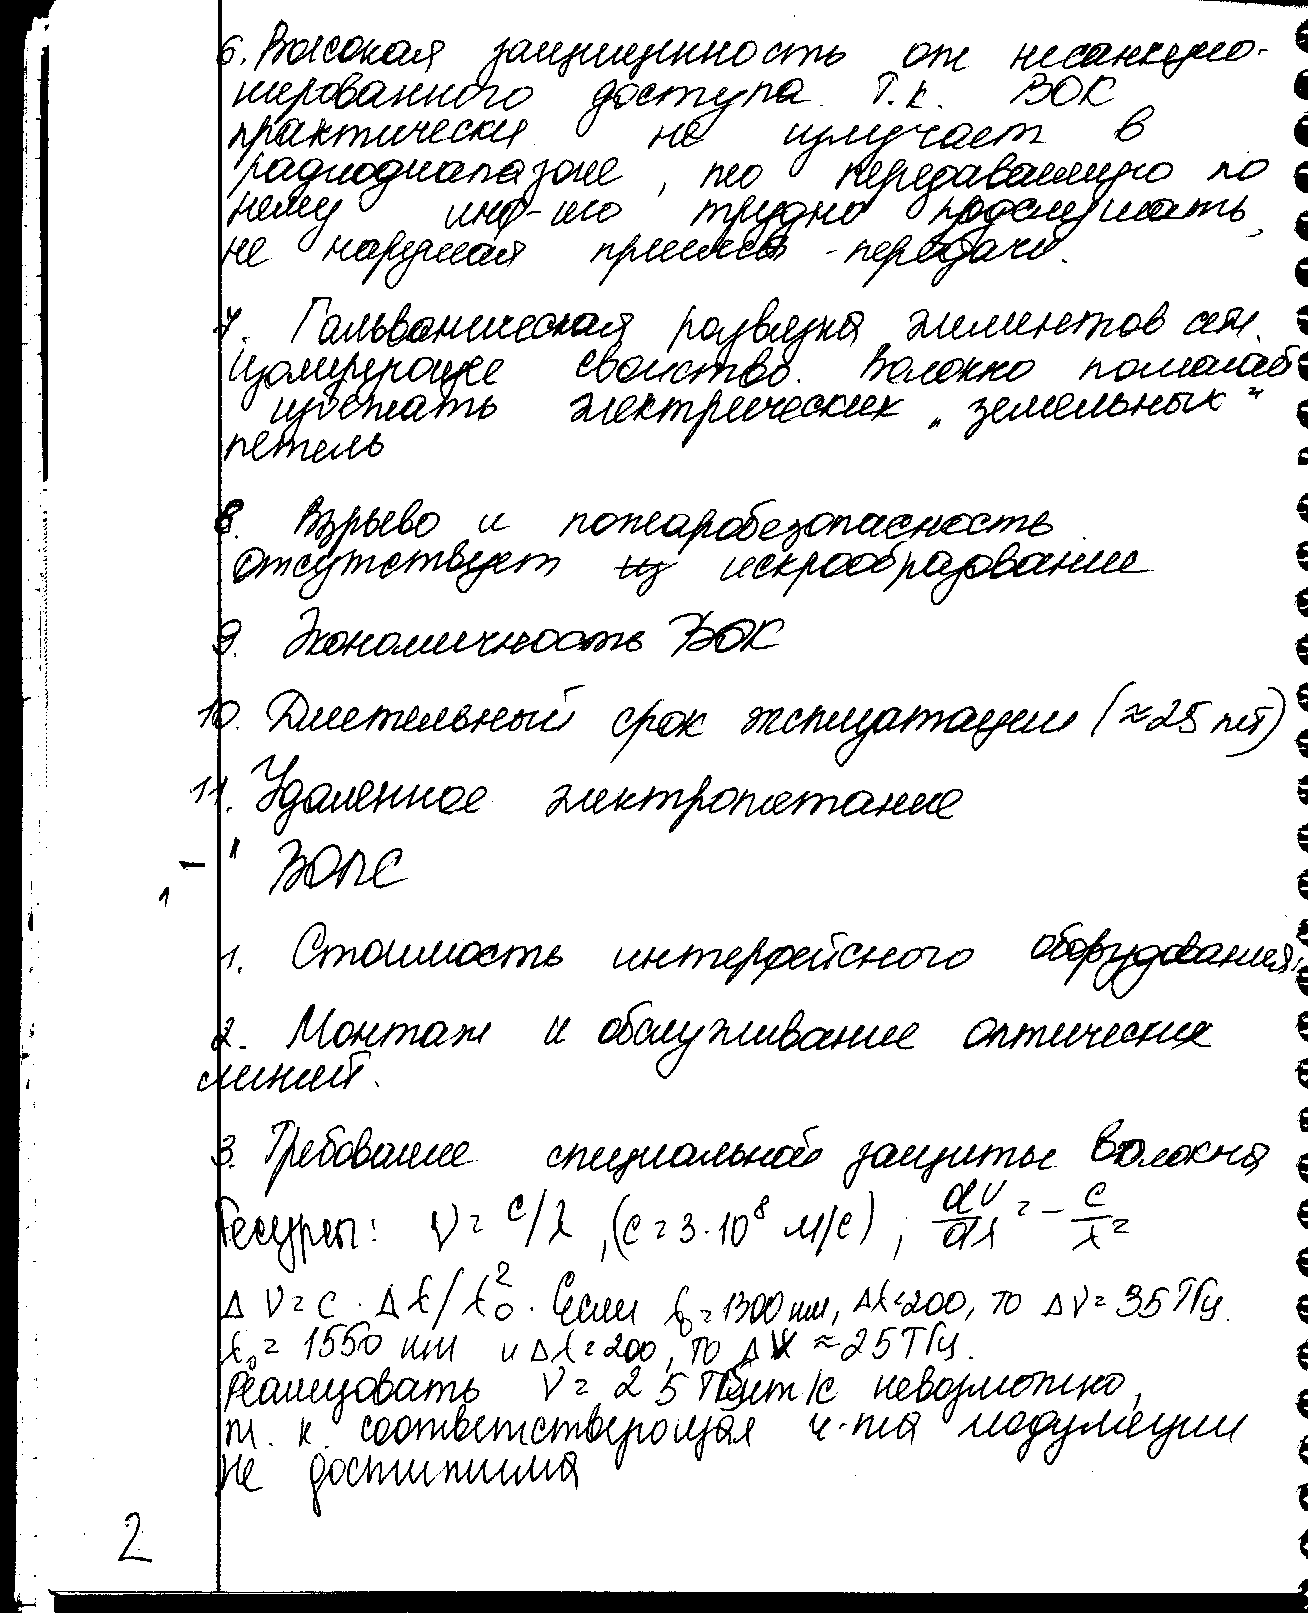 6. Высокая защищенность от несанкцио-
нированного доступа. Т.к. ВОК
практически не излучает в
радиодиапазоне, то передаваемую по
нему инф-ию трудно подслушать,
не нарушая приема-передачи.
7. Гальваническая развязка элементов сети.
Изолирующее свойство. Волокно помогает
избежать электрических „земельных"
петель
8. Взрыво и пожаробезопасность
отсутствует искрообразование
9. Экономичность ВОК
10. Длительный срок эксплуатации (≈25 лет)
11. Удаленное электропитание
"–" ВОЛС
1. Стоимость интерфейсного оборудования.
2. Монтаж и обслуживание оптических
линий.
3. Требование специальной защиты волокна
Ресурсы: ν = c/λ, (c = 3·10⁸ м/с), dν/dλ = - c/λ²
Δν = c · Δλ/λ₀². Если λ₀ = 1300 нм, Δλ=200, то Δν = 35 ТГц.
λ₀ = 1550 нм и Δλ=200, то Δν ≈ 25 ТГц.
Реализовать ν = 25 Тбит/с невозможно,
т. к. соответствующая ч-та модуляции
не достижима
2